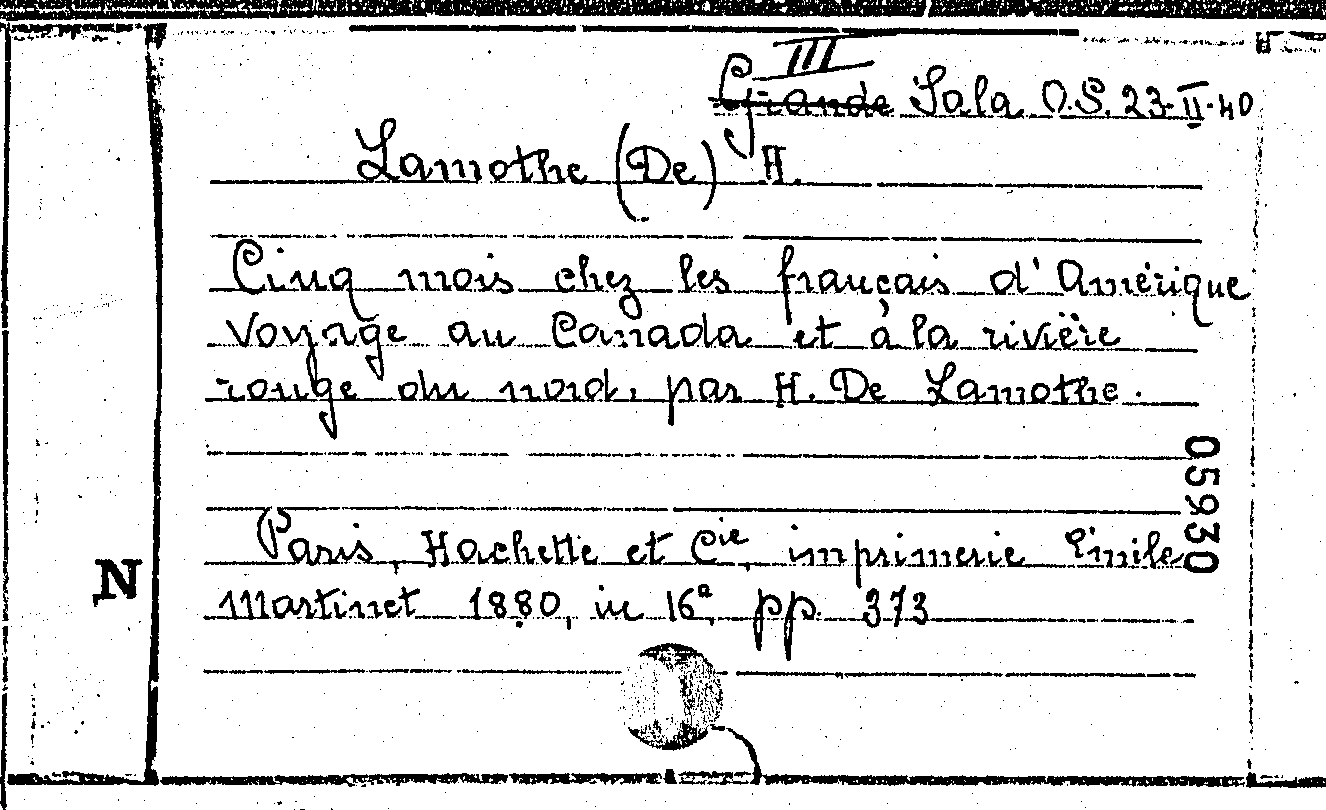 III
Grande Sala O.S. 23-II-40
Lamothe (De) H.
Cinq mois chez les français d'Amérique
Voyage au Canada et à la rivière
rouge du nord, par H. De Lamothe.
05930
Paris, Hachette et Cie, imprimerie Emile
N
Martinet 1880, in 16°, pp. 373